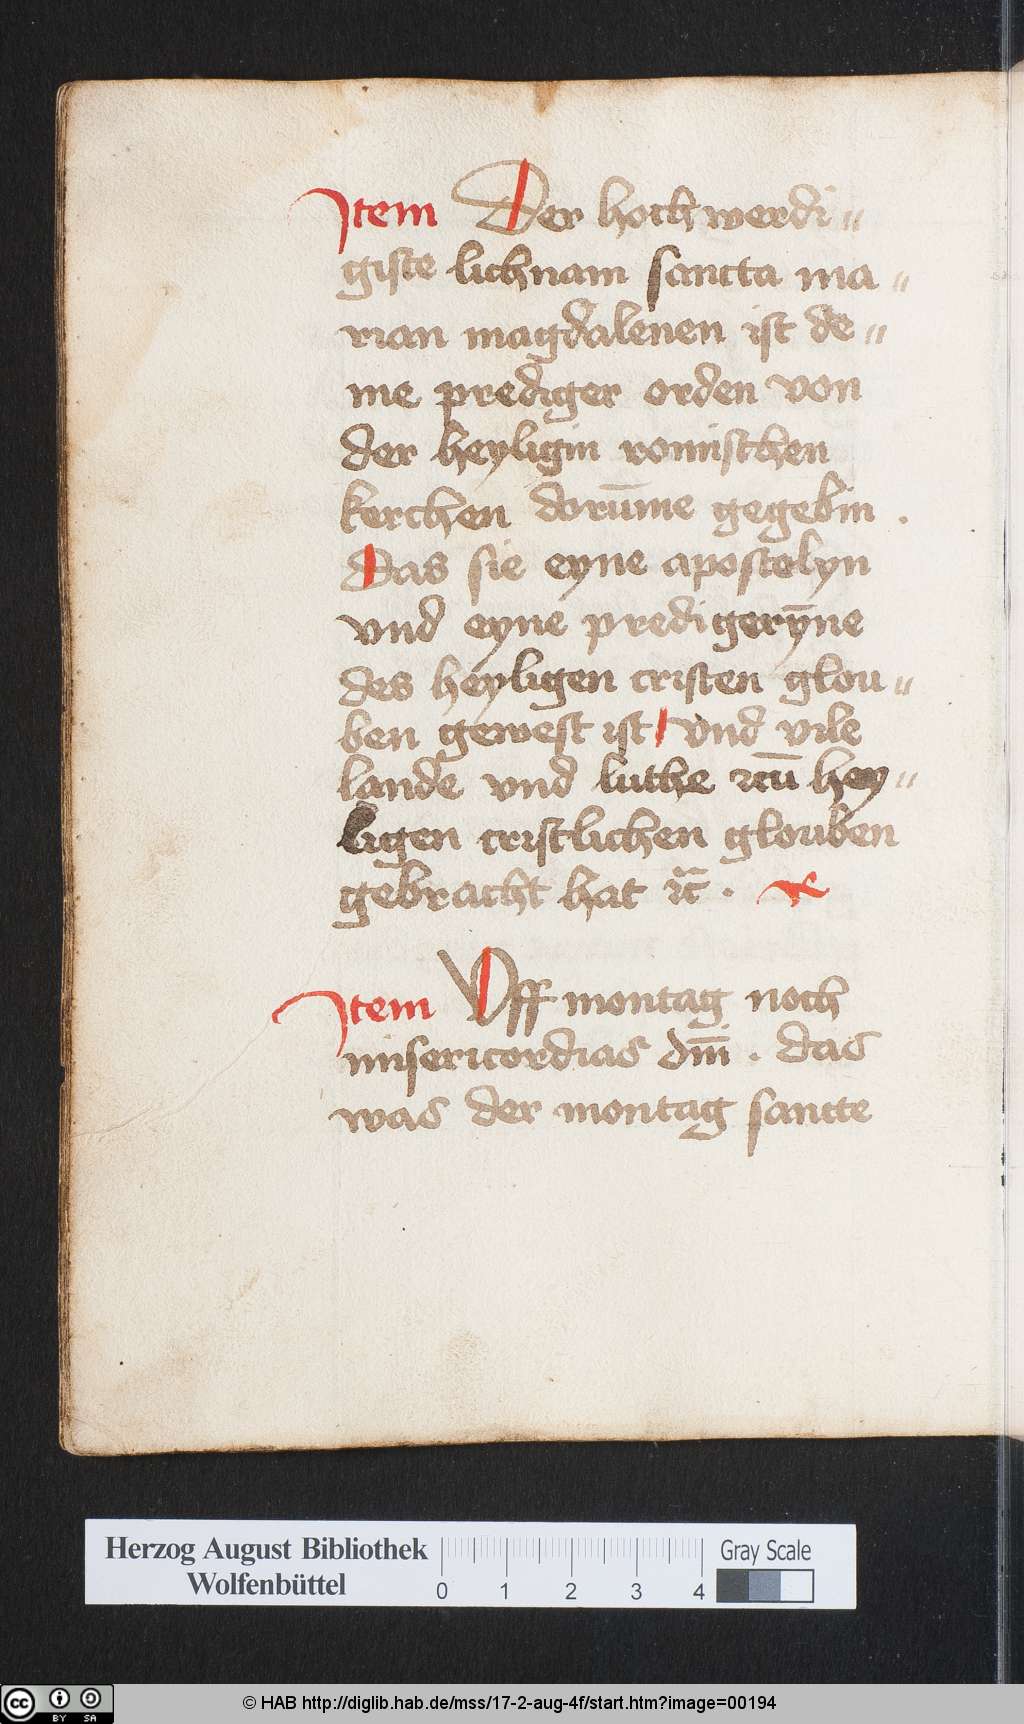 Item Der hochwerdi〃
giste lichnam sancta ma〃
rian magdalenen ist de〃
me prediger orden von
der heyligin romischen
kerchen dorūme gegebin .
Das sie eyne apostolyn
vnd eyne predigerȳne
des heyligen cristen glou〃
ben gewest ist vnd vile
lande vnd luthe zcū hey〃
ligen cristlichen glouben
gebracht hat ꝛc̄ .
Item Vff montag noch
misericordias dm̄i . das
was der montag sancte
Herzog August Bibliothek
Wolfenbüttel
0 1 2 3 4
Gray Scale
cc BY SA
© HAB http://diglib.hab.de/mss/17-2-aug-4f/start.htm?image=00194